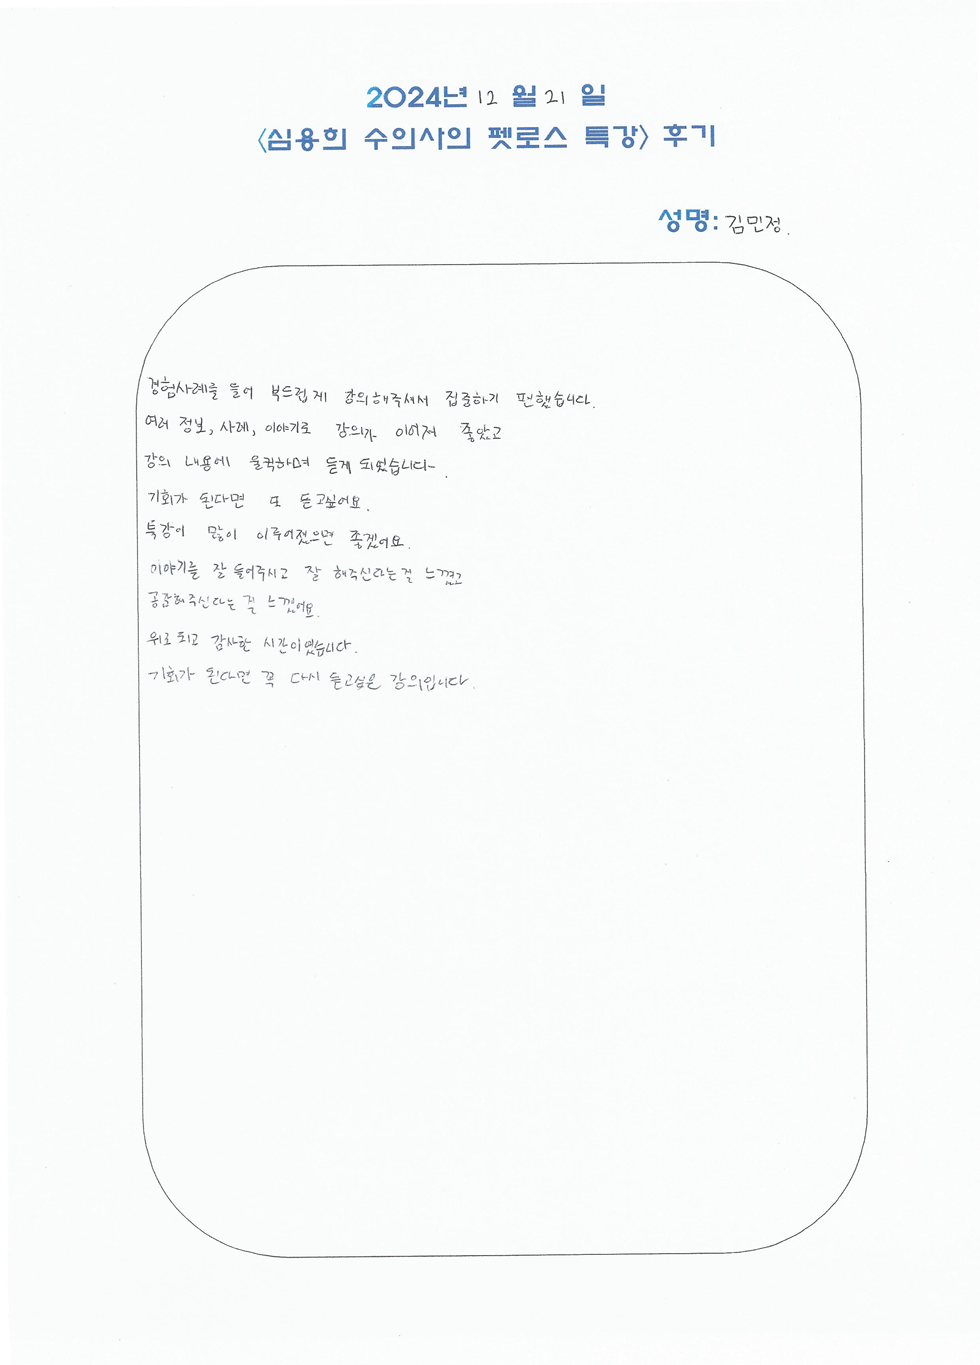 2024년 12 월 21 일
<심용희 수의사의 펫로스 특강> 후기
성명: 김민정.
경험사례를 들어 부드럽게 강의해주셔서 집중하기 편했습니다.
여러 정보, 사례, 이야기로 강의가 이어져 좋았고
강의 내용에 울컥하며 듣게 되었습니다~.
기회가 된다면 또 듣고싶어요.
특강이 많이 이루어졌으면 좋겠어요.
이야기를 잘 들어주시고 잘 해주신다는걸 느꼈고
공감해주신다는 걸 느꼈어요.
위로되고 감사한 시간이였습니다.
기회가 된다면 꼭 다시 듣고싶은 강의입니다.